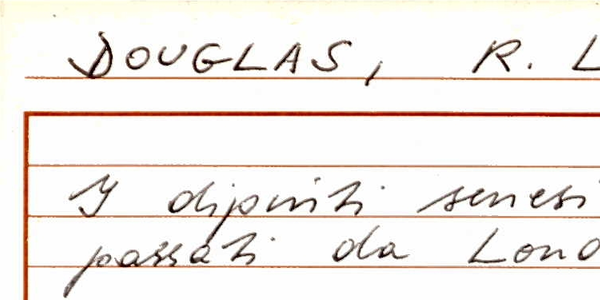 DOUGLAS, R. L
I dipinti senesi
passati da Lond